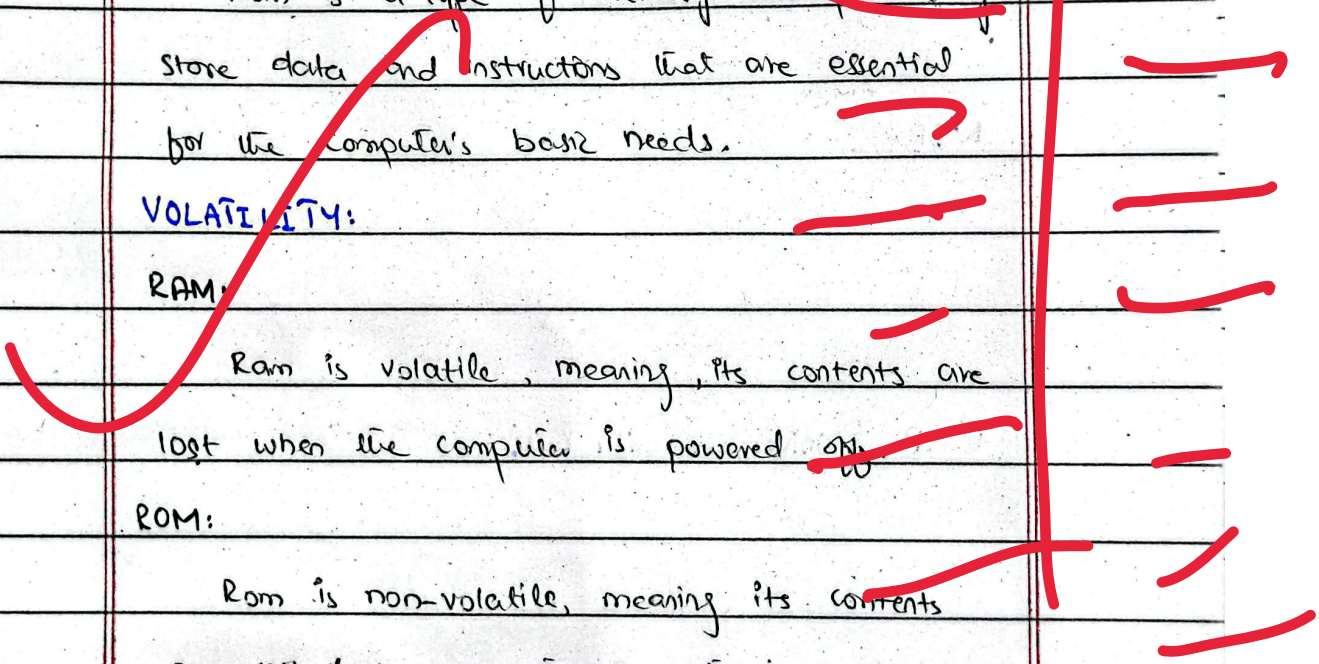 store data and instructions that are essential
for the computer's basic needs.
VOLATILITY:
RAM:
Ram is volatile, meaning, its contents are
lost when the computer is powered off
ROM:
Rom is non-volatile, meaning its contents